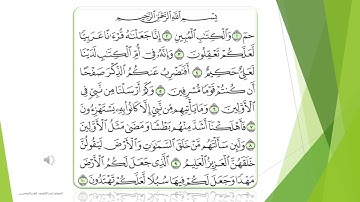 بِسْمِ ٱللَّهِ ٱلرَّحْمَٰنِ ٱلرَّحِيمِ
حمٓ ١ وَٱلْكِتَٰبِ ٱلْمُبِينِ ٢ إِنَّا جَعَلْنَٰهُ قُرْءَٰنًا عَرَبِيًّا
لَّعَلَّكُمْ تَعْقِلُونَ ٣ وَإِنَّهُۥ فِىٓ أُمِّ ٱلْكِتَٰبِ لَدَيْنَا
لَعَلِىٌّ حَكِيمٌ ٤ أَفَنَضْرِبُ عَنكُمُ ٱلذِّكْرَ صَفْحًا
أَن كُنتُمْ قَوْمًا مُّسْرِفِينَ ٥ وَكَمْ أَرْسَلْنَا مِن نَّبِىٍّ فِى
ٱلْأَوَّلِينَ ٦ وَمَا يَأْتِيهِم مِّن نَّبِىٍّ إِلَّا كَانُوا۟ بِهِۦ يَسْتَهْزِءُونَ
٧ فَأَهْلَكْنَآ أَشَدَّ مِنْهُم بَطْشًا وَمَضَىٰ مَثَلُ ٱلْأَوَّلِينَ
٨ وَلَئِن سَأَلْتَهُم مَّنْ خَلَقَ ٱلسَّمَٰوَٰتِ وَٱلْأَرْضَ لَيَقُولُنَّ
خَلَقَهُنَّ ٱلْعَزِيزُ ٱلْعَلِيمُ ٩ ٱلَّذِى جَعَلَ لَكُمُ ٱلْأَرْضَ
مَهْدًا وَجَعَلَ لَكُمْ فِيهَا سُبُلًا لَّعَلَّكُمْ تَهْتَدُونَ ١٠